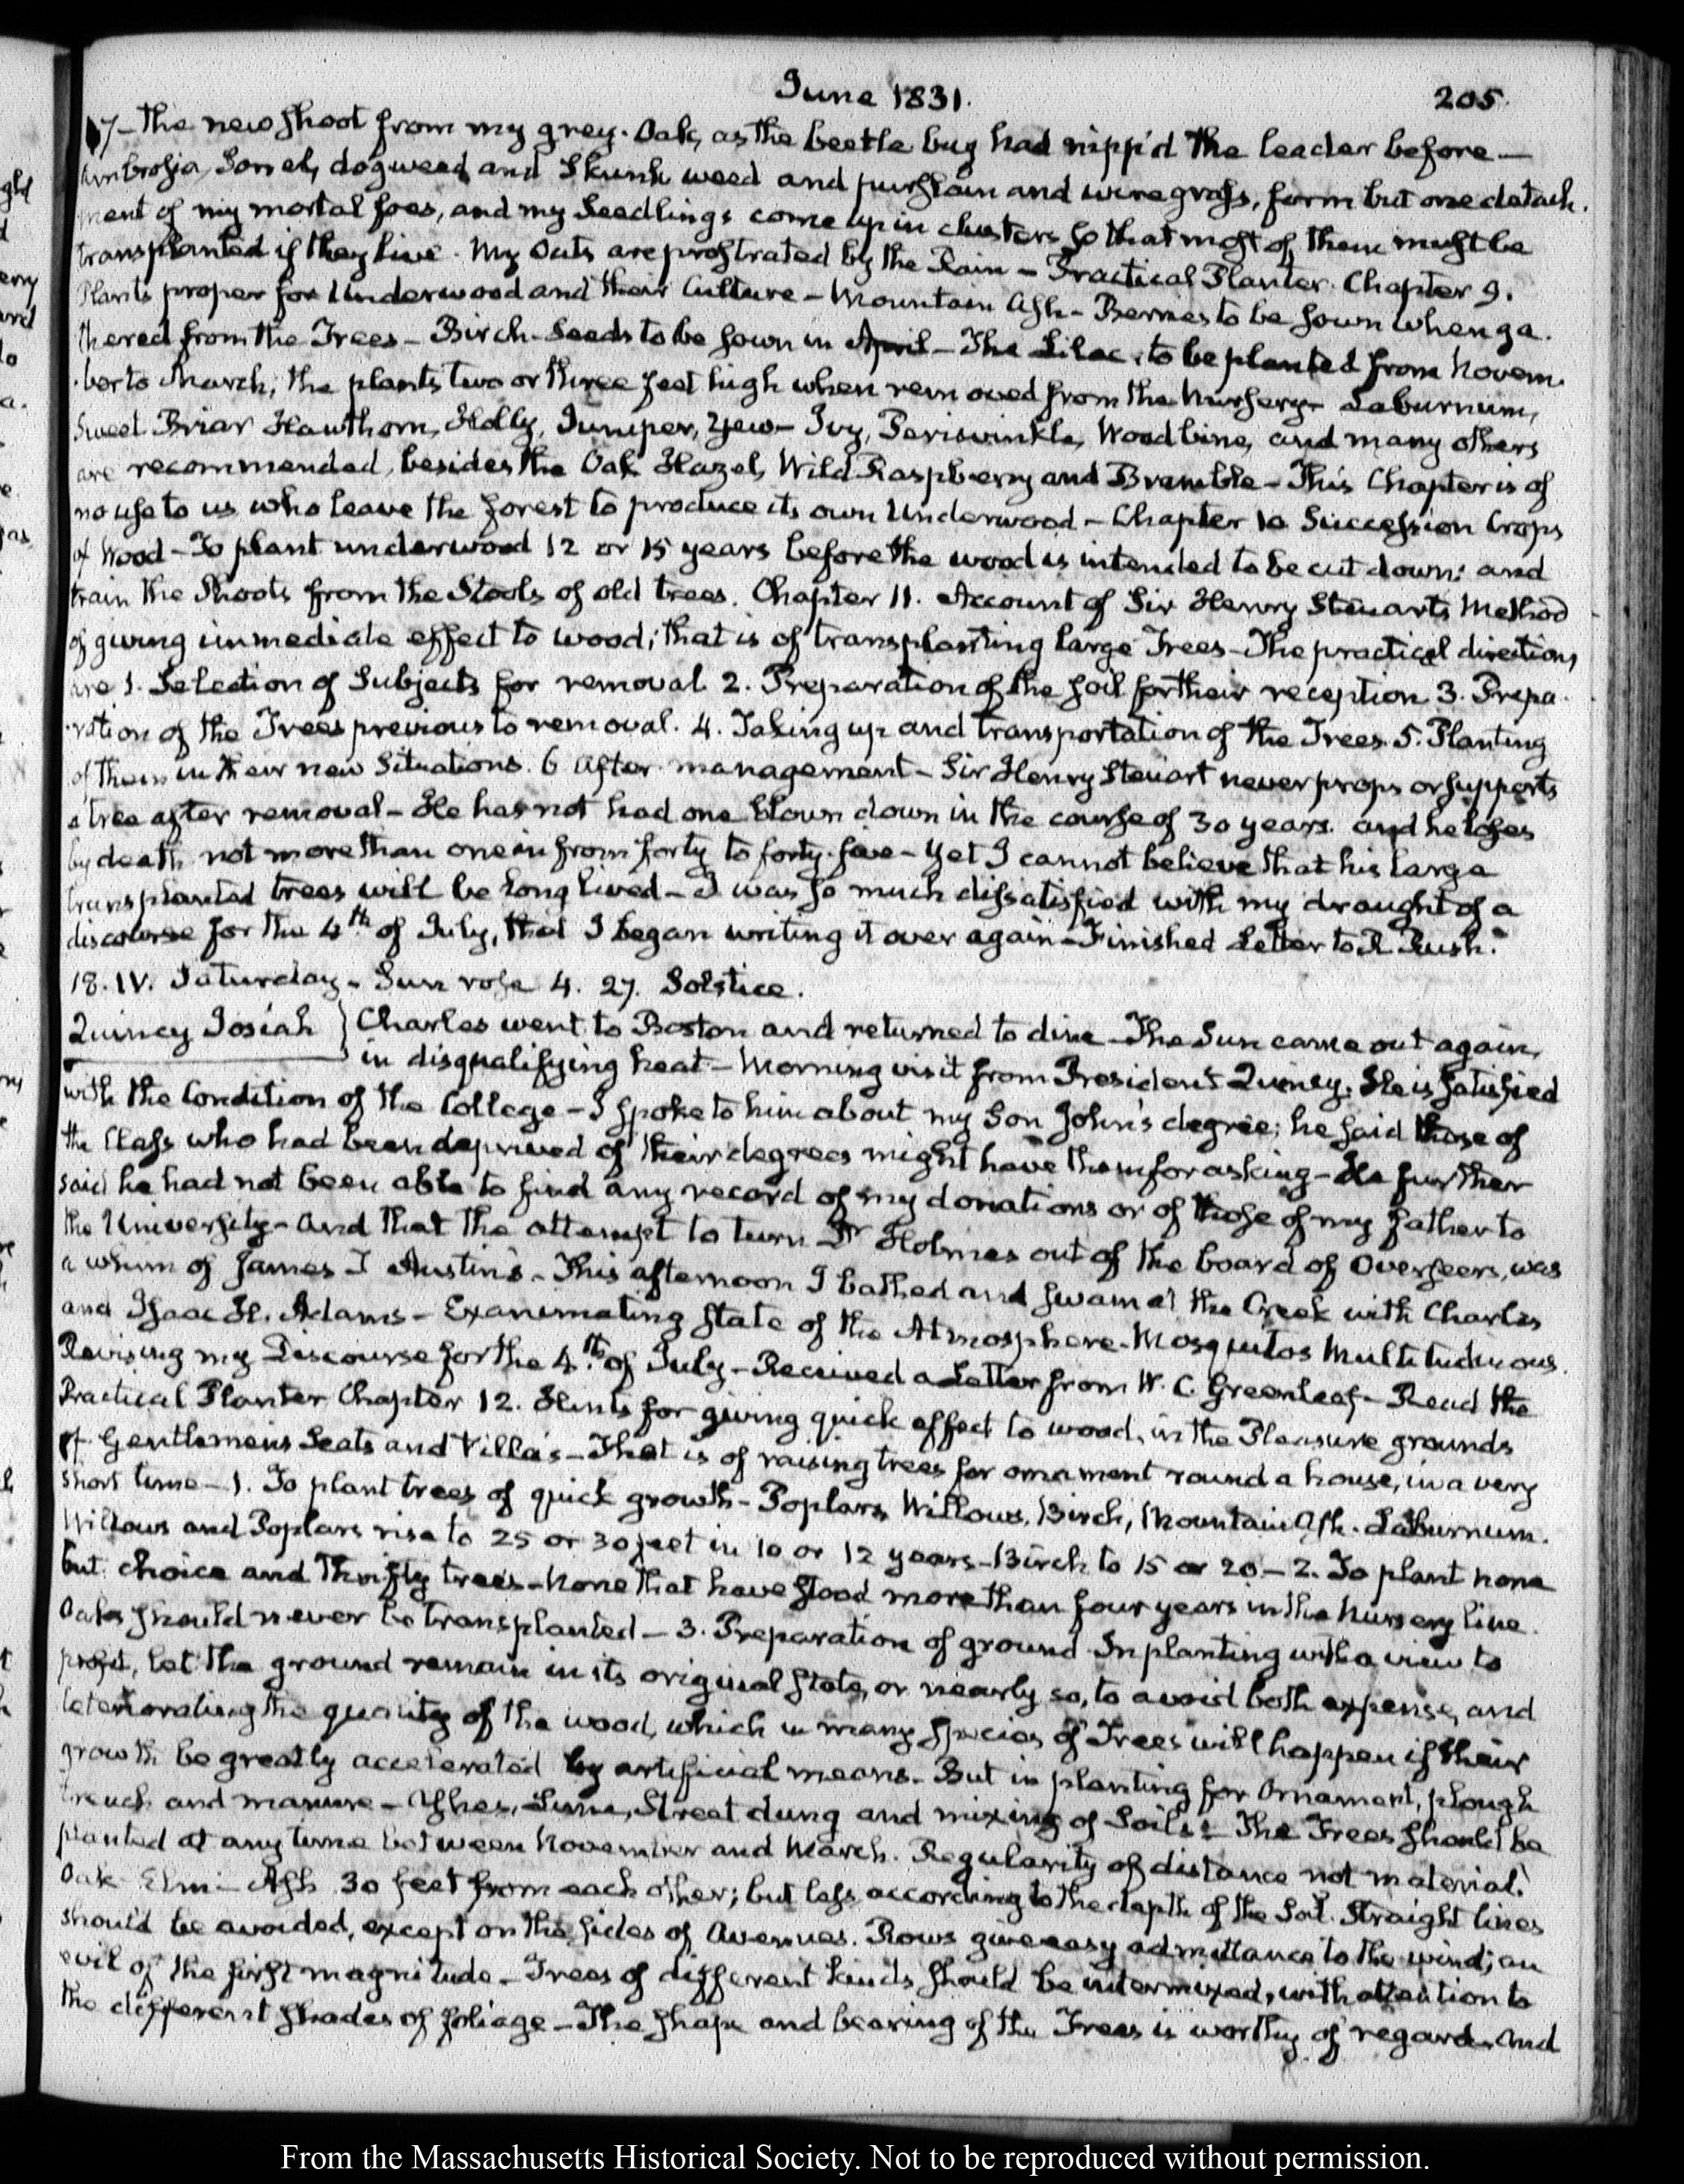 June 1831.
205.
17 - the new shoot from my grey. Oak, as the beetle bug had nipp'd the leader before —
Ambrosia, Sorrel, dogweed and Skunk weed and purslain and wire grass, form but one detach.
ment of my mortal foes, and my Seedlings come up in clusters so that most of them must be
transplanted if they live. My Oats are prostrated by the Rain — Practical Planter. Chapter 9.
Plants proper for Underwood and their Culture — Mountain Ash — Berries to be sown when ga.
thered from the Trees — Birch — Seeds to be sown in April — The Lilac, to be planted from Novem.
ber to March; the plants two or three feet high when removed from the Nursery — Laburnum,
Sweet Briar Hawthorn, Holly, Juniper, Yew — Ivy, Periwinkle, Woodbine, and many others
are recommended, besides the Oak Hazel, Wild Raspberry and Bramble — This Chapter is of
no use to us who leave the forest to produce its own Underwood — Chapter 10 Succession Crops
of Wood — To plant underwood 12 or 15 years before the wood is intended to be cut down: and
train the Shoots from the Stools of old trees. Chapter 11. Account of Sir Henry Steuarts Method
of giving immediate effect to wood; that is of transplanting large Trees — The practical directions
are 1. Selection of Subjects for removal 2. Preparation of the soil for their reception 3. Prepa.
ration of the Trees previous to removal. 4. Taking up and transportation of the Trees. 5. Planting
of them in their new Situations. 6 After management — Sir Henry Steuart never props or supports
a tree after removal — He has not had one blown down in the course of 30 years. and he loses
by death not more than one in from forty to forty-five — Yet I cannot believe that his large
transplanted trees will be long lived — I was so much dissatisfied with my draught of a
discourse for the 4th of July, that I began writing it over again — Finished Letter to R Rush.
18. IV. Saturday — Sun rose 4. 27. Solstice.
Quincy Josiah } Charles went to Boston and returned to dine — The Sun came out again,
in disqualifying heat — Morning visit from President Quincy. He is satisfied
with the Condition of the College — I spoke to him about my Son John's degree; he said those of
the Class who had been deprived of their degrees might have them for asking — He further
said he had not been able to find any record of my donations or of those of my father to
the University — And that the attempt to turn Dr Holmes out of the board of Overseers, was
a whim of James T Austin's — This afternoon I bathed and swam at the Creek with Charles
and Isaac H. Adams — Exanimating state of the Atmosphere — Mosquitos Multitudinous.
Revising my Discourse for the 4th of July — Received a Letter from W. C. Greenleaf — Read the
Practical Planter Chapter 12. Hints for giving quick effect to wood, in the Pleasure grounds
of Gentlemen's Seats and Villa's — That is of raising trees for ornament round a house, in a very
short time — 1. To plant trees of quick growth — Poplars, Willows, Birch, Mountain Ash. Laburnum.
Willows and Poplars rise to 25 or 30 feet in 10 or 12 years — Birch to 15 or 20 — 2. To plant none
but choice and thrifty trees — None that have stood more than four years in the Nursery line.
Oaks should never be transplanted — 3. Preparation of ground In planting with a view to
profit, let the ground remain in its original state, or nearly so, to avoid both expense, and
deteriorating the quality of the wood, which in many species of Trees will happen if their
growth be greatly accelerated by artificial means — But in planting for Ornament, plough
trench and manure — Ashes, Lime, Street dung and mixing of Soils — The Trees should be
planted at any time between November and March. Regularity of distance not material.
Oak — Elm — Ash 30 feet from each other; but less according to the depth of the Soil. Straight lines
should be avoided, except on the sides of Avenues. Rows give easy admittance to the wind; an
evil of the first magnitude — Trees of different kinds should be intermixed, with attention to
the different shades of foliage — The shape and bearing of the Trees is worthy of regard. And
From the Massachusetts Historical Society. Not to be reproduced without permission.